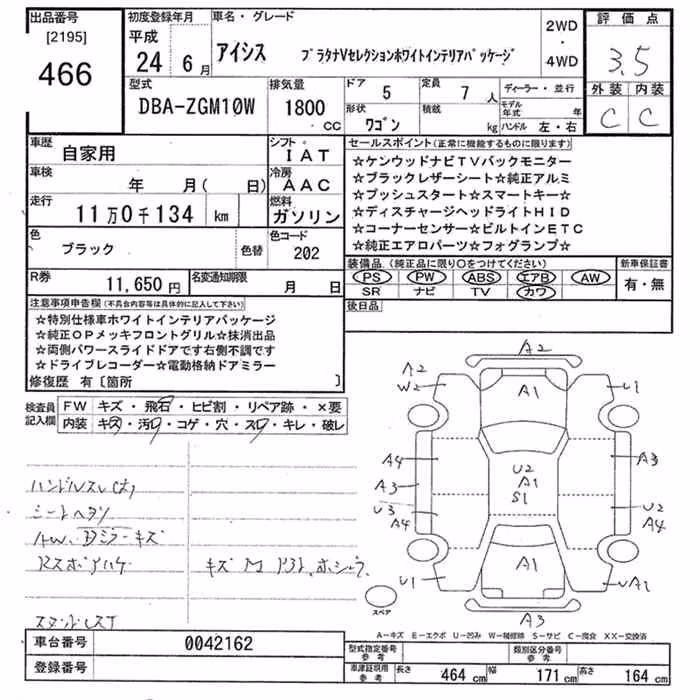 出品番号
[2195]
466
初度登録年月
平成
24 6月
車名・グレード
アイシス
プラタナVセレクションホワイトインテリアパッケージ
2WD
・
4WD
評価点
3.5
外装 内装
C C
型式
DBA-ZGM10W
排気量
1800
CC
ドア 5
定員 7 人
ディーラー・並行
モデル年式 年
形状 ワゴン
積載 kg
ハンドル 左・右
車歴
自家用
シフト
IAT
車検
年 月( 日)
冷房
AAC
走行
11万0千134 km
燃料
ガソリン
色
ブラック
色替
色コード
202
R券
11,650円
名変通知期限
月 日
セールスポイント(正常に機能するものに限ります)
☆ケンウッドナビTVバックモニター
☆ブラックレザーシート☆純正アルミ
☆プッシュスタート☆スマートキー☆
☆ディスチャージヘッドライトHID
☆コーナーセンサー☆ビルトインETC
☆純正エアロパーツ☆フォグランプ☆
装備品(純正品に限り〇をつけてください)
PS PW ABS エアB AW
SR ナビ TV カワ
新車保証書
有・無
後日品
注意事項申告欄(不具合内容等は具体的に記入して下さい)
☆特別仕様車ホワイトインテリアパッケージ
☆純正OPメッキフロントグリル☆抹消出品
☆両側パワースライドドアです右側不調です
☆ドライブレコーダー☆電動格納ドアミラー
修復歴 有〔箇所 〕
検査員記入欄
FW キズ・飛石・ヒビ割・リペア跡・×要
内装 キズ・汚れ・コゲ・穴・スレ・キレ・破レ
ハンドルスレ(大)
シートヘタリ
キズ
A2
A2
W2
U1
A1
A4
A3
U3
A4
U2
A1
S1
A3
U2
A4
U1
A1
A3
スペア
A-キズ E-エクボ U-凹み W-補修跡 S-サビ C-腐食 XX-交換済
車台番号
0042162
登録番号
型式指定番号
参考
類別区分番号
参考
車庫証明用
参考
長さ 464 cm
幅 171 cm
高さ 164 cm